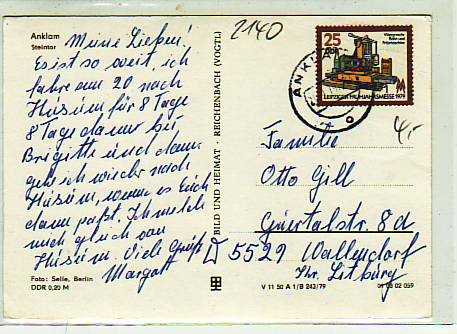 Anklam
Steintor
2140
Meine Lieben!
Es ist so weit, ich
fahre am 20 nach
Husum für 8 Tage
8 Tage dann bei
Brigitte und dann
geh ich wieder nach
Husum, wenn es Euch
dann paßt. Ich melde
mich gleich von
Husum. Viele Grüße
Margot
Foto: Selle, Berlin
DDR 0,20 M
BILD UND HEIMAT · REICHENBACH (VOGTL)
25
DDR
LEIPZIGER FRÜHJAHRSMESSE 1979
ANKLAM
Familie
Otto Gill
Güertalstr. 8d
W 5529 Wallendorf
Kr. Bitburg
V 11 50 A 1/B 243/79
01 03 02 059